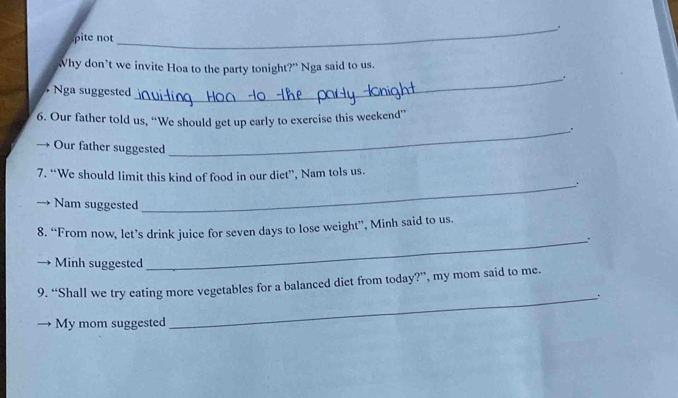 pite not ______.
Why don't we invite Hoa to the party tonight?" Nga said to us.
Nga suggested inviting Hoa to the party tonight.
6. Our father told us, “We should get up early to exercise this weekend”
→ Our father suggested ______.
7. “We should limit this kind of food in our diet”, Nam tols us.
→ Nam suggested ______.
8. “From now, let’s drink juice for seven days to lose weight”, Minh said to us.
→ Minh suggested ______.
9. “Shall we try eating more vegetables for a balanced diet from today?”, my mom said to me.
→ My mom suggested ______.